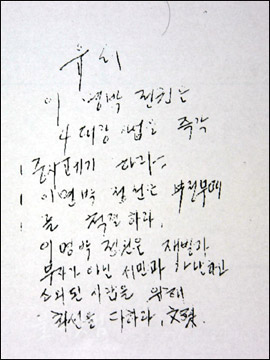 이 명박 정권은
4대강 사업을 즉각
중지 폐기하라.
이명박 정권은 부정부패
를 척결하라.
이명박 정권은 재벌과
부자가 아닌 서민과 가난하고
소외된 사람을 위해
최선을 다하라. 文殊.